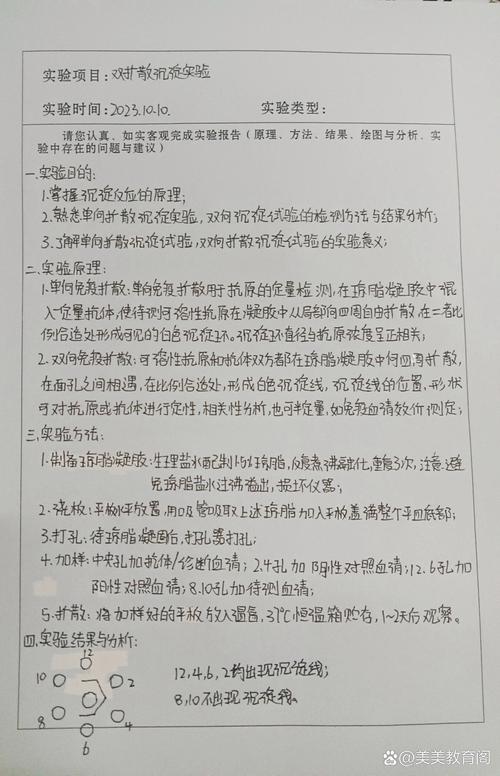 实验项目：双扩散沉淀实验
实验时间：2023.10.10.　　实验类型：
请您认真、如实客观完成实验报告（原理、方法、结果、绘图与分析、实
验中存在的问题与建议）
一.实验目的：
1.掌握沉淀反应的原理；
2.熟悉单向扩散沉淀实验，双向沉淀试验的检测方法与结果分析；
3.了解单向扩散沉淀试验，双向扩散沉淀试验的实验意义；
二.实验原理：
1.单向免疫扩散：单向免疫扩散用于抗原的定量检测，在琼脂凝胶中混
入定量抗体，使待测可溶性抗原在凝胶中从局部向四周自由扩散，在二者比
例恰适处形成可见的白色沉淀环。沉淀环直径与抗原浓度呈正相关；
2.双向免疫扩散：可溶性抗原和抗体双方都在琼脂凝胶中向四周扩散，
在两孔之间相遇，在比例恰适处，形成白色沉淀线，沉淀线的位置、形状
可对抗原或抗体进行定性，相关性分析，也可半定量，如免疫血清效价测定；
三.实验方法：
1.制备琼脂凝胶：生理盐水配制1.5%琼脂，反复煮沸融化，重复3次，注意避
免琼脂盐水过沸溢出，损坏仪器；
2.浇板：平板水平放置，用吸管吸取上述琼脂加入平板盖满整个平皿底部；
3.打孔：待琼脂凝固后，打孔器打孔；
4.加样：中央孔加抗体/诊断血清；2.4孔加阴性对照血清；12.6孔加
阳性对照血清；8.10孔加待测血清；
5.扩散：将加样好的平板放入湿盒，37℃恒温箱贮存，1~2天后观察。
四.实验结果与分析：
12
10
2
8
4
6
12,4,6,2均出现沉淀线；
8,10不出现沉淀线。
美美教育阁